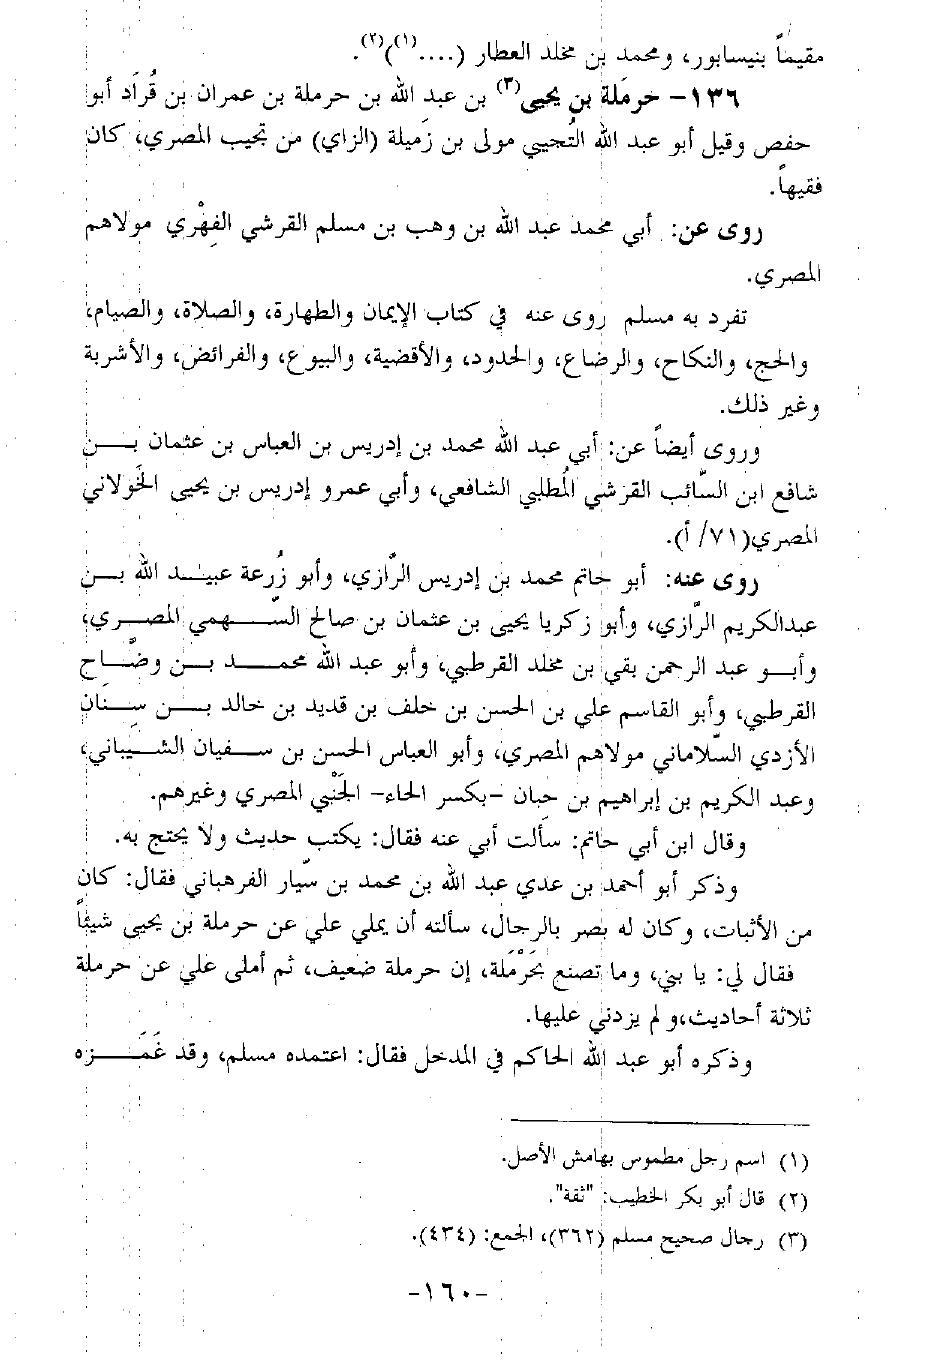 مقيماً بنيسابور، ومحمد بن مخلد العطار (....(١))(٢).
١٣٦- حرمَلة بن يحيى(٣) بن عبد الله بن حرملة بن عمران بن قُرَاد أبو
حفص وقيل أبو عبد الله التُجيبي مولى بن زَميلة (الزاي) من تجيب المصري، كان
فقيهاً.
روى عن: أبي محمد عبد الله بن وهب بن مسلم القرشي الفِهْري مولاهم
المصري.
تفرد به مسلم روى عنه في كتاب الإيمان والطهارة، والصلاة، والصيام،
والحج، والنكاح، والرضاع، والحدود، والأقضية، والبيوع، والفرائض، والأشربة
وغير ذلك.
وروى أيضاً عن: أبي عبد الله محمد بن إدريس بن العباس بن عثمان بــن
شافع ابن السَّائب القرشي المُطلبي الشافعي، وأبي عمرو إدريس بن يحيى الخَولاني
المصري(٧١/ أ).
روى عنه: أبو حاتم محمد بن إدريس الرَّازي، وأبو زُرعة عبيـد الله بـن
عبدالكريم الرَّازي، وأبو زكريا يحيى بن عثمان بن صالح السَّـهمي المصـري،
وأبـو عبد الرحمن بقي بن مخلد القرطبي، وأبو عبد الله محمـــد بــن وضَّـاح
القرطبي، وأبو القاسم علي بن الحسن بن خلف بن قديد بن خالد بــن سِـنَان
الأزدي السَّلاماني مولاهم المصري، وأبو العباس الحسن بن سـفيان الشـيباني،
وعبد الكريم بن إبراهيم بن حِبان -بكسر الحاء- الجَنْبي المصري وغيرهم.
وقال ابن أبي حاتم: سألت أبي عنه فقال: يكتب حديث ولا يحتج به.
وذكر أبو أحمد بن عدي عبد الله بن محمد بن سيَّار الفرهباني فقال: كان
من الأثبات، وكان له بصر بالرجال، سألته أن يملي علي عن حرملة بن يحيى شيئاً
فقال لي: يا بني، وما تصنع بحَرْمَلة، إن حرملة ضعيف، ثم أملى علي عن حرملة
ثلاثة أحاديث،و لم يزدني عليها.
وذكره أبو عبد الله الحاكم في المدخل فقال: اعتمده مسلم، وقد غَمَــزه
(١) اسم رجل مطموس بهامش الأصل.
(٢) قال أبو بكر الخطيب: "ثقة".
(٣) رجال صحيح مسلم (٣٦٢)، الجمع: (٤٣٤).
-١٦٠-